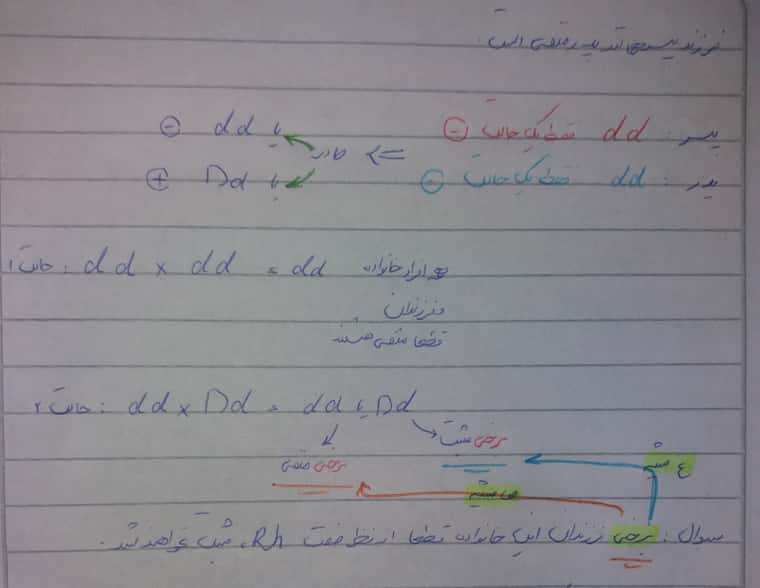 فرزند پسر ... منفی است.
پسر: dd فقط یک حالت ⊖ ⇐ مادر یا dd ⊖
پدر: dd فقط یک حالت ⊖ یا Dd ⊕
حالت ۱: dd × dd = dd همه افراد خانواده
فرزندان
قطعا منفی هستند
حالت ۲: dd × Dd = dd یا Dd
برخی منفی برخی مثبت
سوال: برخی فرزندان این خانواده قطعا از نظر صفت Rh، مثبت خواهند شد.